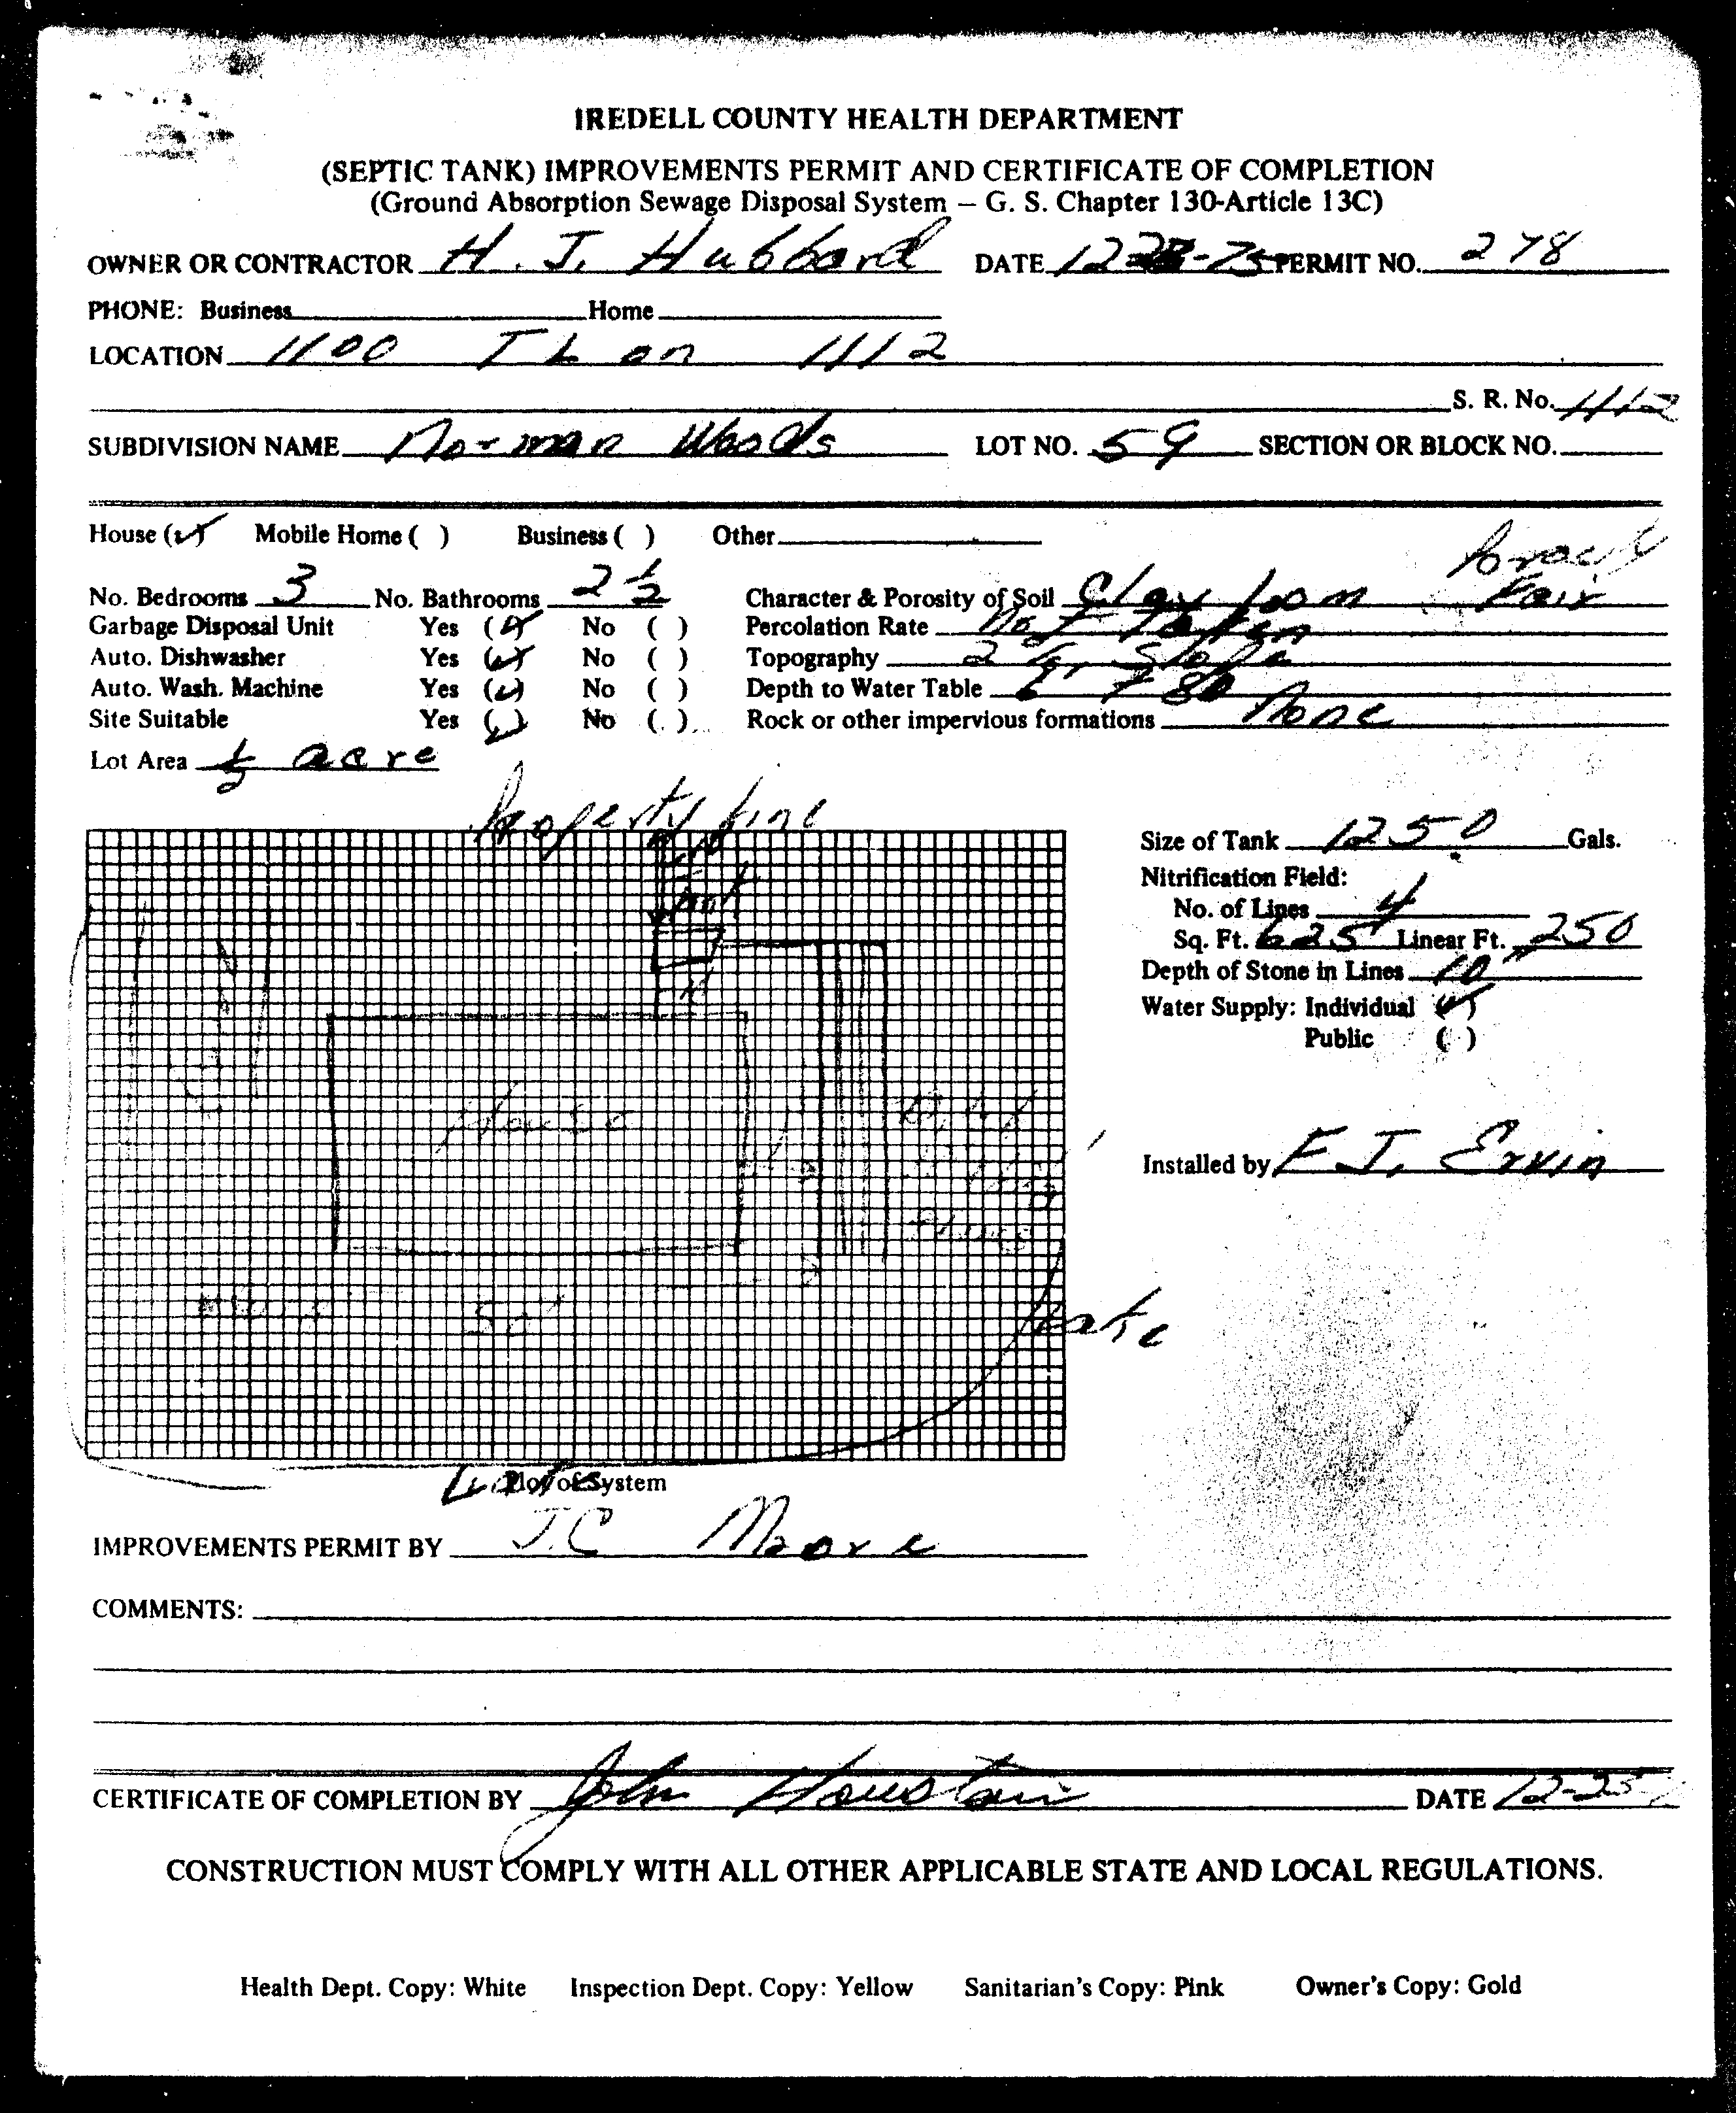 IREDELL COUNTY HEALTH DEPARTMENT
(SEPTIC TANK) IMPROVEMENTS PERMIT AND CERTIFICATE OF COMPLETION
(Ground Absorption Sewage Disposal System – G. S. Chapter 130-Article 13C)
OWNER OR CONTRACTOR H. J. Hubbard DATE 12-23-75 PERMIT NO. 278
PHONE: Business Home
LOCATION 1100 T L on 1112
S. R. No. 1112
SUBDIVISION NAME Norman Woods LOT NO. 59 SECTION OR BLOCK NO.
House (✓) Mobile Home ( ) Business ( ) Other
No. Bedrooms 3 No. Bathrooms 2 1/2 Character & Porosity of Soil Clay loam Fair
Garbage Disposal Unit Yes (✓) No ( ) Percolation Rate Not Taken
Auto. Dishwasher Yes (✓) No ( ) Topography 2 % Slope
Auto. Wash. Machine Yes (✓) No ( ) Depth to Water Table
Site Suitable Yes (✓) No ( ) Rock or other impervious formations None
Lot Area 1/2 acre
Property line
Size of Tank 1250 Gals.
Nitrification Field:
No. of Lines 4
Sq. Ft. 625 Linear Ft. 250
Depth of Stone in Lines 10"
Water Supply: Individual (✓)
Public ( )
House
Installed by F J. Ervin
50'
Lake
Lake
Plot of System
IMPROVEMENTS PERMIT BY J.C Moore
COMMENTS:
CERTIFICATE OF COMPLETION BY John Houston DATE 12-23
CONSTRUCTION MUST COMPLY WITH ALL OTHER APPLICABLE STATE AND LOCAL REGULATIONS.
Health Dept. Copy: White Inspection Dept. Copy: Yellow Sanitarian's Copy: Pink Owner's Copy: Gold